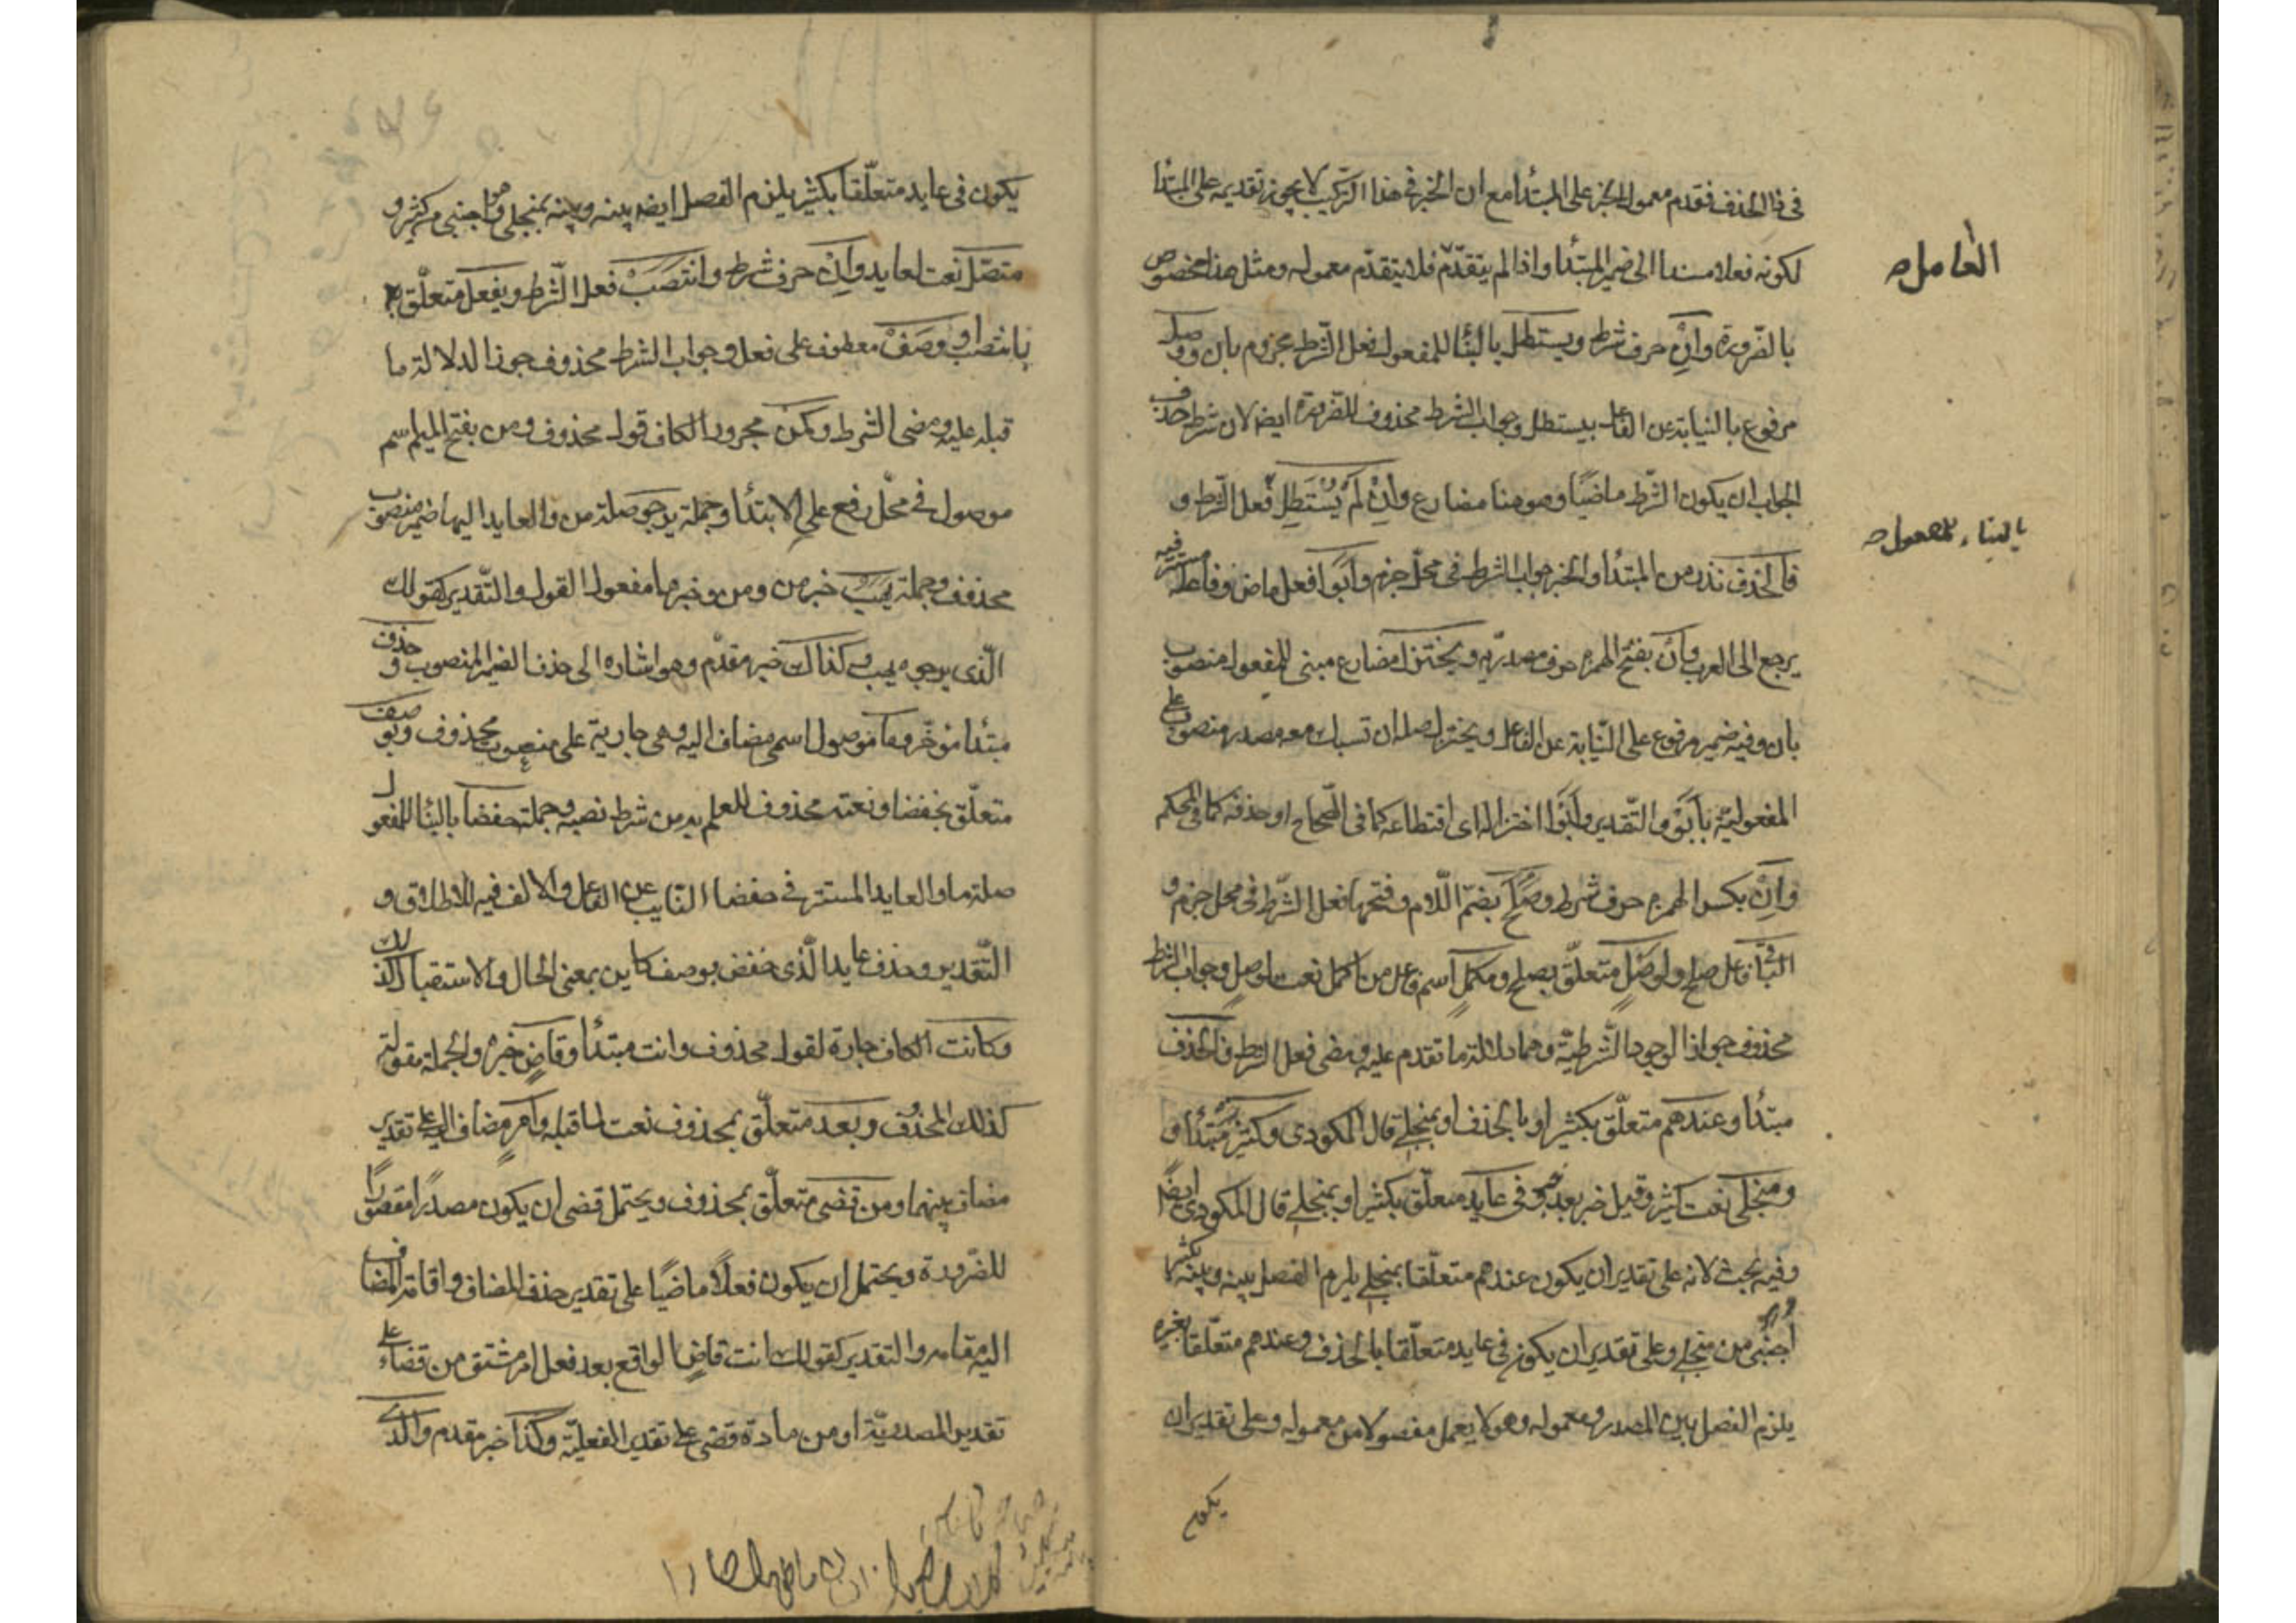 في ذا الحذف فقدم معمول الخبر على المبتدأ مع ان الخبر في هذا التركيب لا يجوز تقديمه على المبتدا
لكونه فعلا مسندا الى ضمير المبتدأ واذا لم يتقدّم فلا يتقدّم معموله ومثل هذا مخصوص
العامل صح
بالضّرورة وانْ حرف شرط ويستطل بالبنا للمفعول فعل الشّرط مجزوم بان ووصل
مرفوع بالنيابة عن الفاعل بيستطل وجواب الشرط محذوف للضرورة ايضا لان شرط حذف
الجواب ان يكون الشّرط ماضيًا وهو هنا مضارع وانْ لَمْ يُسْتَطِلْ فعل الشرط و
بالبناء للمفعول صح
فالحذف نذر من المبتدأ والخبر جواب الشرط في محلّ جزم وابَوْا فعل ماض وفاعله مستتر فيه
يرجع الى العرب وانْ بفتح الهمزة حرف مصدريّ ويختزل مضارع مبنى للمفعول منصوب
بان وفيه ضمير مرفوع على النّيابة عن الفاعل ويختزل صلة ان تسبك معه مصدر منصوب على
المفعوليّة بابَوْ والتّقدير وابَوْا اختزاله اى اقتطاعه كما فى الصّحاح او حذفه كما فى المحكم
وانْ بكسر الهمزة حرف شرط وصَلح بضمّ اللّام وفتحها فعل الشّرط فى محل جزم و
الباقي فاعل صلح ولوصْلٍ متعلّق بصلح ومكملٍ اسم فاعل من اكمل نعت لوصلٍ وجواب الشرط
محذوف جوازا لوجود الشّرطيّة وهما دلالة ما تقدم عليه ومضى فعل الشرط والحذف
مبتدأ وعندهم متعلّق بكثير او بالحذف او بمنجلي قال المكودى وكثير مُبتدأ و
ومنجلى نعت كثير وقيل خبر بعد خبر وفى عايد متعلّق بكثير او بمنجلي قال المكودى ايضًا
وفيه بحث لانه على تقدير ان يكون عندهم متعلّقا بمنجلي يلزم الفصل بينه وبينه بكثير
اجنبى من منجلي وعلى تقدير ان يكون فى عايد متعلقا بالحذف وعندهم متعلّقا بغيره
يلزم الفصل بين المصدر ومعموله وهو لا يعمل مفصولا من معموله وعلى تقدير ان
يكون
يكون فى عايد متعلّقا بكثير يلزم الفصل ايضا بينه وبينه بمنجلى وهو اجنبى من كثير و
متصّل نعت لعايد وانْ حرف شرط وانتصَبَ فعل الشّرط وبفعل متعلّق
بانتصب او وصَفْ معطوف على فعل وجواب الشرط محذوف جوازا لدلالة ما
قبله عليه ومضى الشرط وكمن مجرور الكاف قول محذوف ومن بفتح الميم اسم
موصول فى محلّ رفع على الابتدأ وجملة يرجو صلة من والعايد اليها ضمير منصوب
محذوف وجملة يهب خبر من ومن وخبرها مفعول القول والتّقدير كقولك
الّذى يرجوه يهب وكذاك خبر مقدّم وهو اشاره الى حذف الضمير المنصوب وحذف
مبتدأ مؤخّر وما موصول اسمى مضاف اليه وهى جارية على منصوب محذوف وبوصف
متعلّق بخفضا ونعته محذوف للعلم به من شرط نصبه وجملة خفضا بالبنا للمفعول
صلة ما والعايد المستتر فى خفضا النايب عن الفاعل والالف فيه للاطلاق و
التّقدير وحذف عايد الّذى خفض بوصف كاين بمعنى الحال والاستقبال كذلك
وكانت الكاف جارة لقول محذوف وانت مبتدأ وقاضٍ خبره والجملة مقولة
كذلك المحذوف وبعد متعلّق بمحذوف نعت لما قبله وامرٍ مضاف اليه على تقدير
مضاف بينهما ومن قضى متعلّق بمحذوف ويحتمل قضى ان يكون مصدرًا مقصورًا
للضّرورة ويحتمل ان يكون فعلًا ماضيًا على تقدير حذف المضاف واقامة المضاف
اليه مقامه والتقدير كقولك انت قاضٍ الواقع بعد فعل امر مشتق من قضاء على
تقدير المصدريّة او من مادة قضى على تقدير الفعليّة وكذا خبر مقدم والّذى